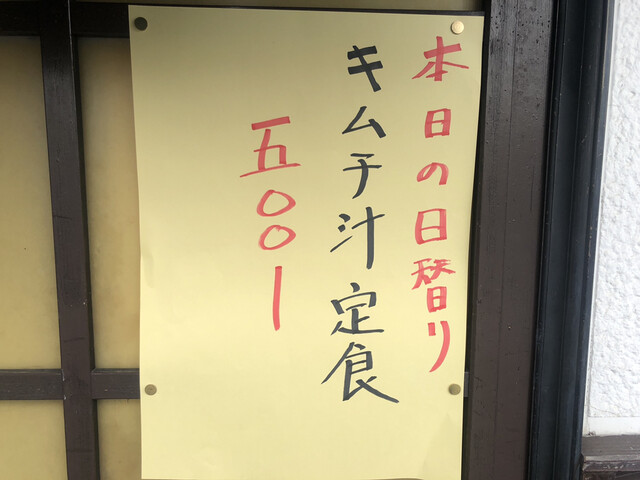 本日の日替り
キムチ汁定食
五〇〇ー